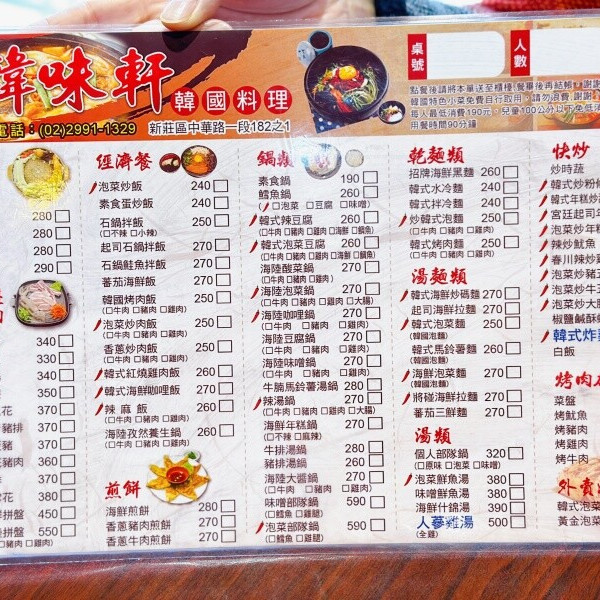 韓味軒
韓國料理
電話：(02)2991-1329 新莊區中華路一段182之1
桌號
人數
點餐後請將本單送至櫃檯(餐畢後再結帳)謝謝
韓國特色小菜免費自行取用，請勿浪費，謝謝
每人最低消費190元，兒童100公分以下免低消
用餐時間90分鐘
280
280
280
290
340
330
340
370
350
370
360
350
370
450
550
經濟餐
泡菜炒飯 240
素食蛋炒飯 240
石鍋拌飯 250
(□不辣 □小辣)
起司石鍋拌飯 270
石鍋鮭魚拌飯 270
蕃茄海鮮飯 270
韓國烤肉飯 250
(□牛肉 □豬肉 □雞肉)
泡菜炒肉飯 250
(□牛肉 □豬肉 □雞肉)
香蔥炒肉飯 250
(□牛肉 □豬肉 □雞肉)
韓式紅燒雞肉飯 260
韓式海鮮咖哩飯 270
辣麻飯 260
(□牛肉 □豬肉 □雞肉)
海陸孜然養生鍋 260
(□牛肉 □豬肉 □雞肉)
煎餅
海鮮煎餅 280
香蔥豬肉煎餅 270
香蔥牛肉煎餅 270
鍋類
素食鍋 190
鱈魚鍋 260
(□泡菜 □豆腐 □味噌)
韓式辣豆腐 270
(□牛肉 □豬肉 □雞肉 □海鮮 □鯛魚)
韓式泡菜豆腐 270
(□牛肉 □豬肉 □雞肉 □海鮮 □鯛魚)
海陸酸菜鍋 270
(□牛肉 □豬肉 □雞肉)
海陸泡菜鍋 270
(□牛肉 □豬肉 □雞肉 □大腸)
海陸咖哩鍋 270
(□牛肉 □豬肉 □雞肉)
海陸豆腐鍋 270
(□牛肉 □豬肉 □雞肉)
海陸味噌鍋 270
(□牛肉 □豬肉 □雞肉)
牛腩馬鈴薯湯鍋 280
辣湯鍋 270
(□牛肉 □豬肉 □雞肉 □大腸)
海鮮年糕鍋 270
(□不辣 □麻辣)
牛排湯鍋 280
豬排湯鍋 260
海陸大醬鍋 270
(□牛肉 □豬肉 □雞肉)
味噌部隊鍋 590
(□鱈魚 □雞腿)
泡菜部隊鍋 590
(□鱈魚 □雞腿)
乾麵類
招牌海鮮黑麵 260
韓式水冷麵 240
韓式拌冷麵 240
炒韓式泡麵 250
(□牛肉 □豬肉 □雞肉)
韓式烤肉麵 250
(□牛肉 □豬肉 □雞肉)
湯麵類
韓式海鮮炒碼麵 270
起司海鮮拉麵 270
韓式泡菜麵 250
(韓國泡麵)
韓式馬鈴薯麵 260
(韓國泡麵)
海鮮泡菜麵 270
(韓國泡麵)
將碰海鮮拉麵 270
蕃茄三鮮麵 270
湯類
個人部隊鍋 320
(□原味 □泡菜 □味噌)
泡菜鮮魚湯 380
味噌鮮魚湯 380
海鮮什錦湯 390
人蔘雞湯 500
(全雞)
快炒
炒時蔬
韓式炒粉條
韓式年糕炒
宮廷起司年
泡菜炒年
辣炒魷魚
春川辣炒雞
泡菜炒豬五
泡菜炒牛五
泡菜炒大腸
椒鹽鹹酥
韓式炸
白飯
烤肉
菜盤
烤魷魚
烤豬肉
烤雞肉
烤牛肉
外賣
韓式泡菜
黃金泡菜